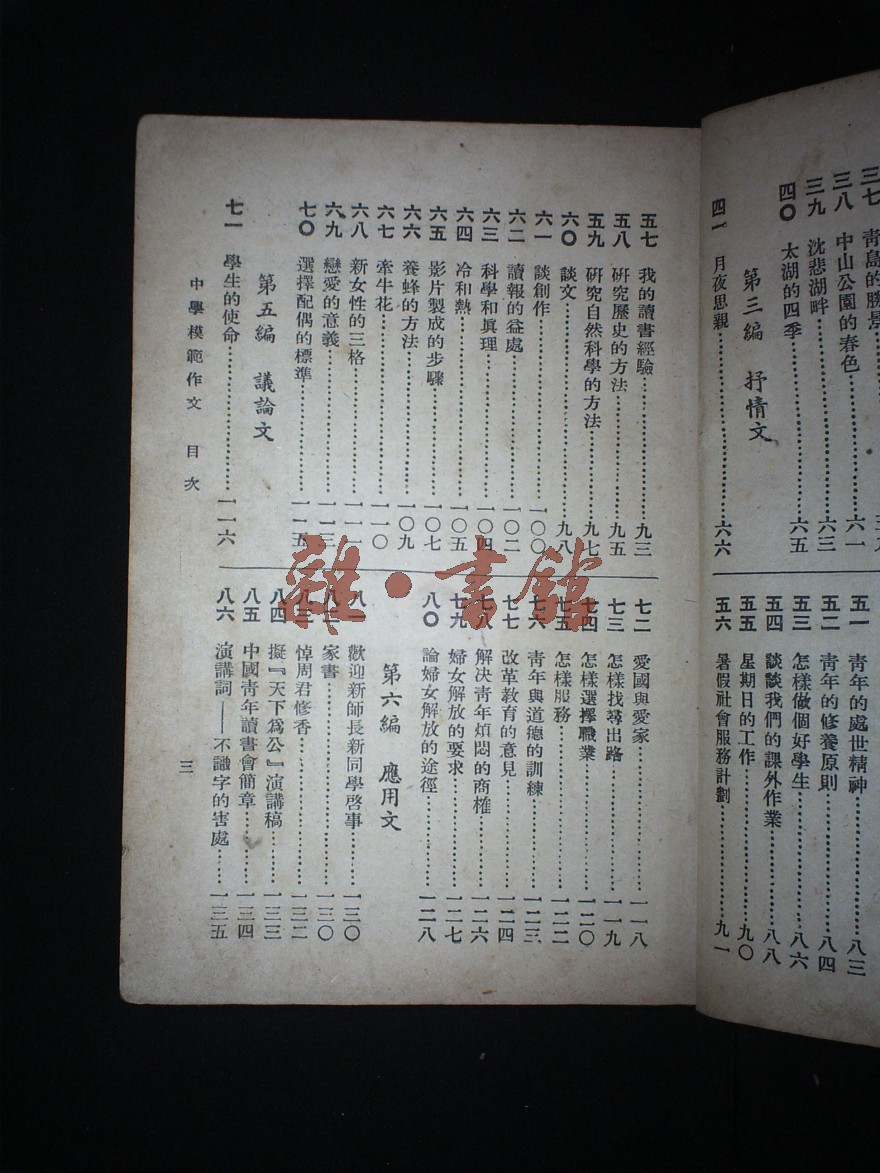 青島的勝景
三八 中山公園的春色……六一
三九 沈悲湖畔……六三
四〇 太湖的四季……六五
第三編 抒情文
四一 月夜思親……六六
五一 青年的處世精神……八三
五二 青年的修養原則……八四
五三 怎樣做個好學生……八六
五四 談談我們的課外作業……八八
五五 星期日的工作……九〇
五六 暑假社會服務計劃……九一
五七 我的讀書經驗……九三
五八 研究歷史的方法……九五
五九 研究自然科學的方法……九七
六〇 談文……九八
六一 談創作……一〇〇
六二 讀報的益處……一〇二
六三 科學和眞理……一〇四
六四 冷和熱……一〇五
六五 影片製成的步驟……一〇七
六六 養蜂的方法……一〇九
六七 牽牛花……一一〇
六八 新女性的三格……一一一
六九 戀愛的意義……一一三
七〇 選擇配偶的標準……一一五
第五編 議論文
七一 學生的使命……一一六
七二 愛國與愛家……一一八
七三 怎樣找尋出路……一一九
七四 怎樣選擇職業……一二〇
七五 怎樣服務……一二二
七六 青年與道德的訓練……一二三
七七 改革教育的意見……一二四
七八 解決青年煩悶的商榷……一二六
七九 婦女解放的要求……一二七
八〇 論婦女解放的途徑……一二八
第六編 應用文
八一 歡迎新師長新同學啓事……一三〇
八二 家書……一三〇
八三 悼周君修香……一三二
八四 擬『天下爲公』演講稿……一三三
八五 中國青年讀書會簡章……一三四
八六 演講詞——不識字的害處……一三五
中學模範作文 目次
三
雜·書館